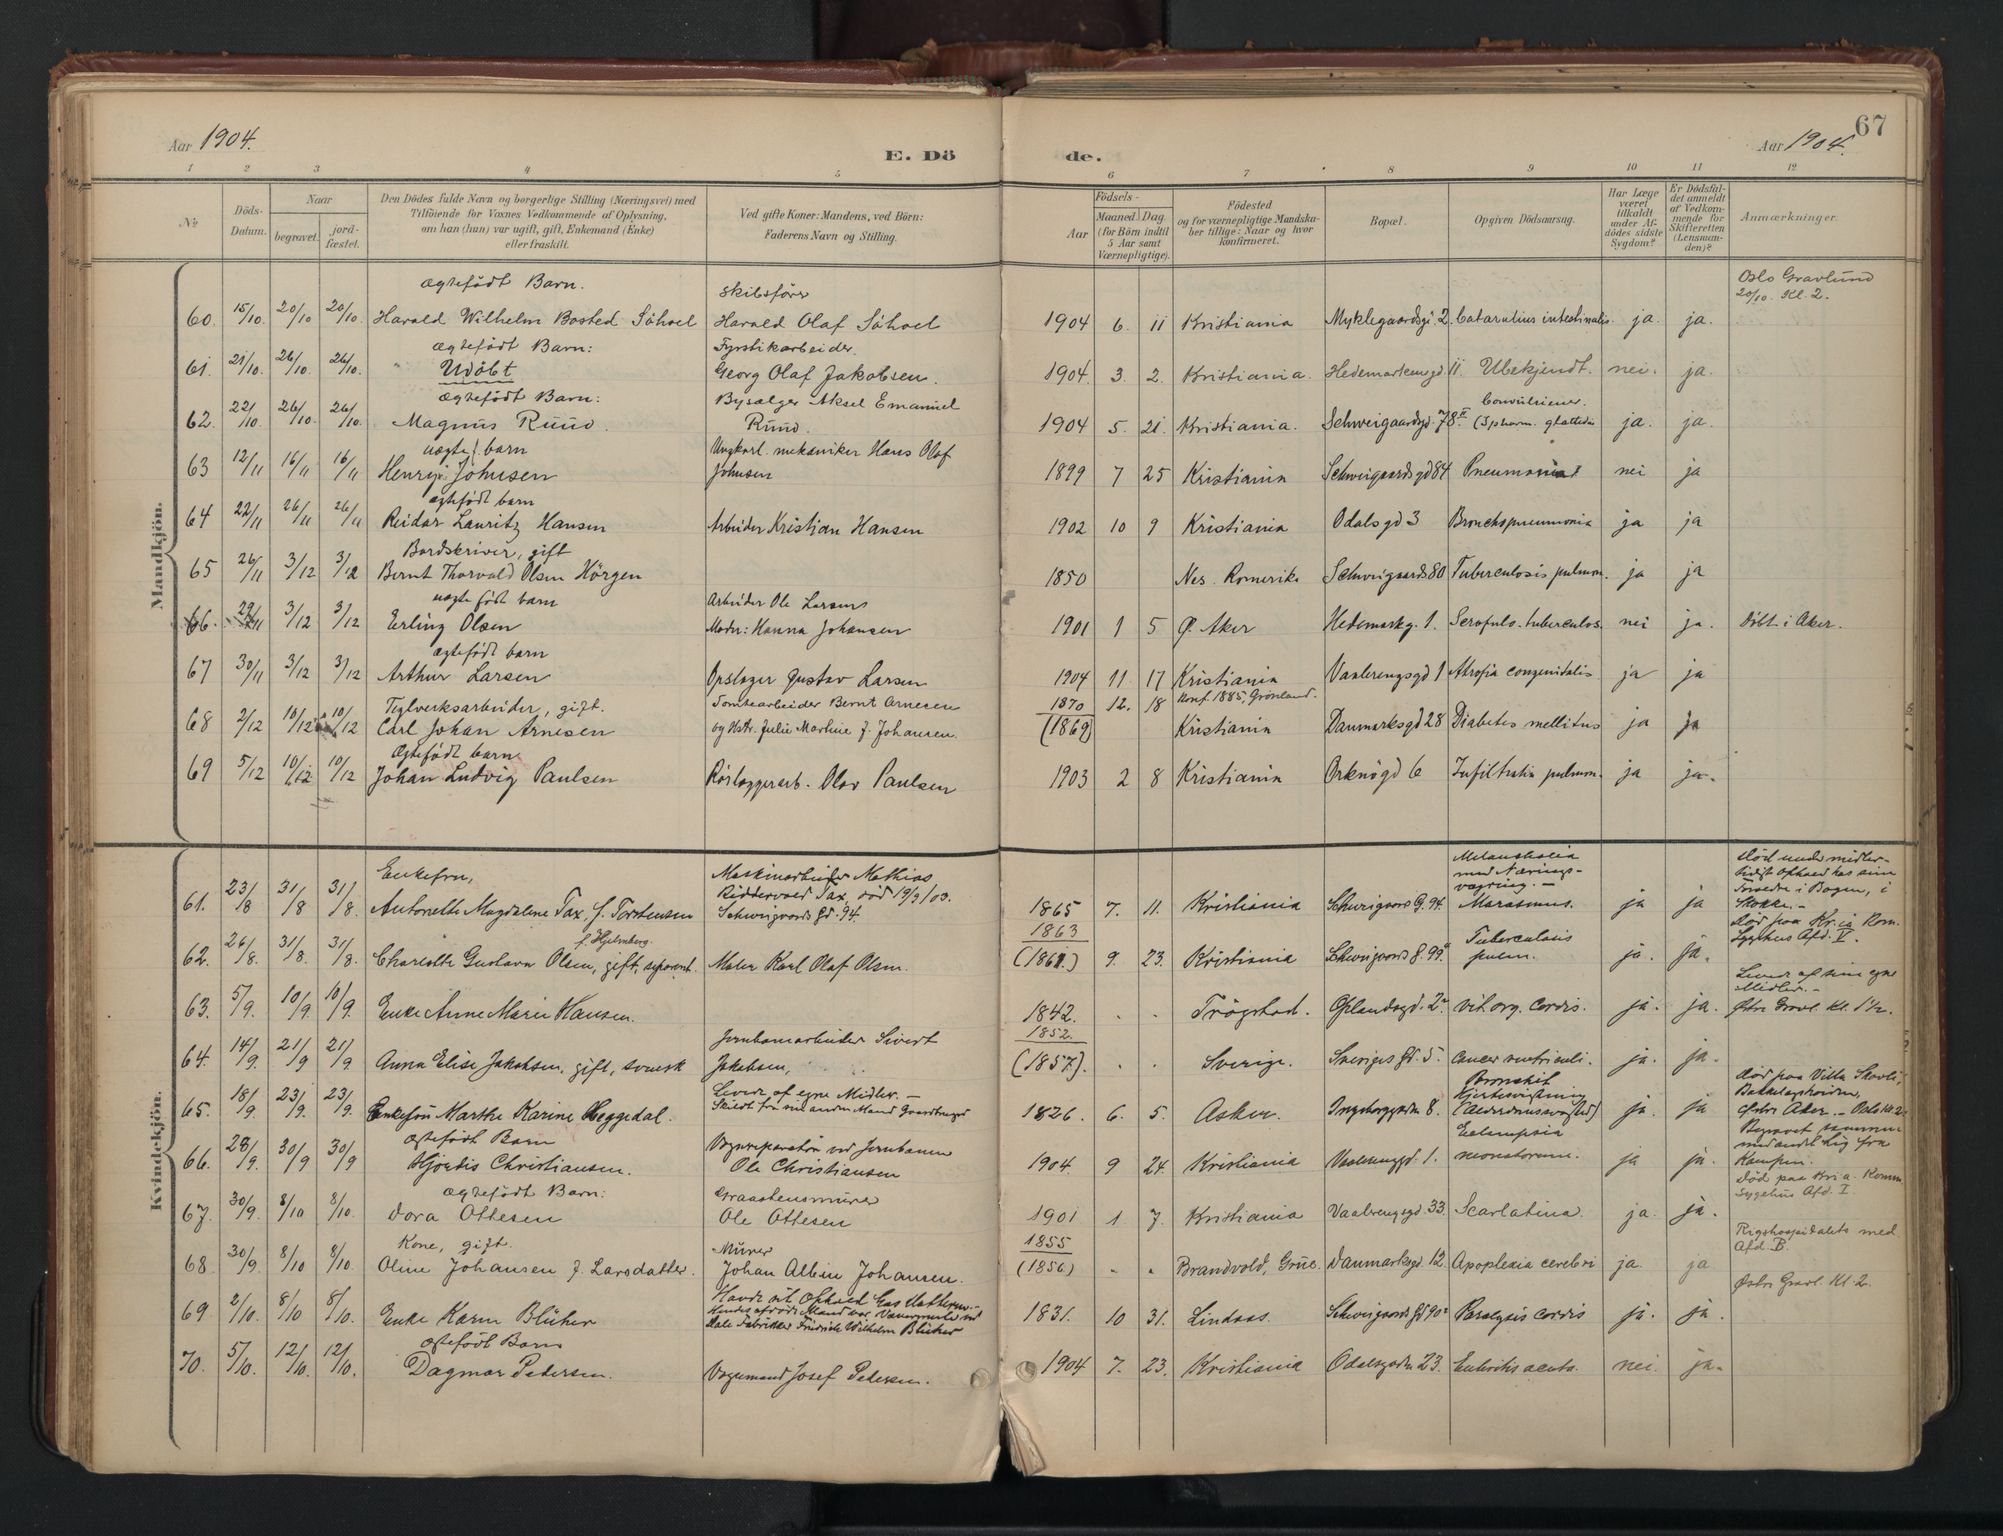 Aar 1904. E. Dö de. Aar 1904. 67
1 2 3 4 5 6 7 8 9 10 11 12
№ Döds-Datum. Naar begravet. jord-fæstet. Den Dödes fulde Navn og borgerlige Stilling (Næringsvei) med Tilföiende for Voxnes Vedkommende af Oplysning, om han (hun) var ugift, gift, Enkemand (Enke) eller fraskilt. Ved gifte Koner: Mandens, ved Börn: Faderens Navn og Stilling. Födsels- Aar Maaned. Dag. (for Börn indtil 5 Aar samt Værnepligtige). Födested og for værnepligtige Mandskaber tillige: Naar og hvor konfirmeret. Bopæl. Opgiven Dödsaarsag. Har Læge været tilkaldt under Afdödes sidste Sygdom? Er Dödsfaldet anmeldt af Vedkommende for Skifteretten (Lensmanden)? Anmærkninger.
Mandkjön.
ægtefödt Barn. Skibsförer Oslo Gravlund 20/10. Kl. 2.
60. 15/10. 20/10 20/10. Harald Wilhelm Bosted Söhoel Harald Olaf Söhoel 1904 6. 11 Kristiania Myklegaardsg. 2. Catarahus intestinalis ja. ja.
ægtefödt Barn: Fyrstikarbeider.
61. 21/10. 26/10. 26/10. Udöbt Georg Olaf Jakobsen. 1904. 3. 2. Kristiania. Hedemarkensgd. 11. Ubekjendt. nei. ja.
ægtefödt Barn: Bysælger Aksel Emanuel Convulsiener.
62. 22/10. 26/10. 26/10. Magnus Ruud. Ruud. 1904 5. 21. Kristiania. Schweigaardsgd. 78. II ja. ja.
uægte barn Ungkarl. mekaniker Hans Olaf
63 12/11 16/11 16/11 Henry Johnsen Johnsen 1899 7 25 Kristiania Schweigaardsgd 84 Pneumonia nei ja
ægtefödt barn
64 22/11 26/11 26/11 Reidar Lauritz Hansen Arbeider Kristian Hansen 1902 10 9 Kristiania Odalsgd 3 Bronchopneumonia ja ja
Bordskriver, gift
65 26/11 3/12 3/12 Bernt Thorvald Olsen Hörgen 1850 Nes. Romerike Schweigaards 80 Tuberculosis pulmon. ja ja
uægte födt barn Arbeider Ole Larsens
66. 29/11 3/12 3/12 Erling Olsen Moder: Hanna Johansen 1901 1 5 Ø. Aker Hedemarkg. 1. Scrofulo-tuberculos. nei ja. Döbt i Aker.
ægtefödt barn
67 30/11 3/12 3/12 Arthur Larsen Opslager Gustav Larsen 1904 11 17 Kristiania Vaalerengsgd 1 Atrofia congenidalis ja ja
Teglverksarbeider, gift. Tomtearbeider Bernt Arnesen 1870 12. 18 Konf. 1885, Grönland.
68 2/12 10/12 10/12 Carl Johan Arnesen og Hstr. Julie Martine f. Johansen. (1869) Kristiania Danmarksgd 28 Diabetes mellitus ja ja
Ægtefödt barn
69 5/12 10/12 10/12 Johan Ludvig Paulsen Rörlæggerarb. Olav Paulsen 1903 2 8 Kristiania Orknögd 6 Infiltratio pulmon. ja ja.
Kvindekjön.
Enkefru, Maskinarbeider Mathias Melancholia med Nærings-vægring. — Död under midlertidigt Ophold hos sine
61. 23/8 31/8 31/8. Antonette Magdalene Tax, f. Torstensen Riddervold Tax, död 19/9/03. Schweigaards Gd. 94. 1865 7. 11. Kristiania Schweigaards G. 94. Marasmus. ja ja Forældre i Bogen, i Stokke. —
f. Hjelmberg. 1863 Tuberculosis Död paa Kr.ia Kom. Sygehus Afd. V.
62. 26/8. 31/8. 31/8. Charlotte Gustava Olsen, gift, separert. Maler Karl Olaf Olsen. (1861.) 9. 23. Kristiania Schweigaards G. 99. pulm. ja. ja.
Levede af sine egne Midler. —
63. 5/9. 10/9 10/9. Enke Anne Marie Hansen. 1842. . . Trögstad. Oplandsgd. 2. vit. org. cordis. ja. ja. Østre Gravl. Kl. 1½.
Jernbanearbeider Sivert 1852.
64. 14/9. 21/9 21/9 Anna Elise Jakobsen, gift, svensk Jakobsen, (1857). . . Sverige. Sveriges Gd. 5. Cancer ventriculi. ja. ja.
Levede af egne Midler. — Bronchit Död paa Villa Skovli, Bækkelagshöiden,
65. 18/9. 23/9. 23/9. Enkefru Marthe Karine Heggedal. Skildt fra sin anden Mand Gaardbruger 1826. 6. 5. Asker. Ingeborggaden 8. ja. ja Østre Aker. — Oslo Kl. 2.
ægtefödt Barn Vognreparatör ved Jernbanen Eclampsia Begravet sammen med andet Lig fra
66. 28/9. 30/9 30/9 Hjördis Christiansen. Ole Christiansen 1904. 9 24. Kristiania Vaalerenggd. 1. neonatorum. ja ja. Kampen.
ægtefödt Barn: Graastensmurer Död paa Kria. Komm. Sygehus Afd. I.
67. 30/9. 8/10 8/10. Dora Ottesen Ole Ottesen 1901 1. 7. Kristiania Vaalerengsgd. 33. Scarlatina. ja. ja.
Kone, gift. Murer 1855 Rigshospitalets med. Afd. B.
68. 30/9. 8/10 8/10. Oline Johansen f. Larsdatter. Johan Albin Johansen. (1856) . . Brandvold, Grue. Danmarksgd. 12. Apoplexia cerebri ja. ja
Havde sit Ophold Østre Gravl. Kl. 2.
69. 2/10. 8/10 8/10. Enke Karen Blüher Hendes afdöde Mand var Vævermester ved Hole Fabrikker Fredrik Wilhelm Blüher 1831. 10 31. Lindaas. Schweigaards Gd 90 Paralysis cordis ja. ja.
ægtefödt Barn
70. 5/10. 12/10. 12/10. Dagmar Petersen. Vognmand Josef Petersen. 1904 7. 23. Kristiania Odalsgaden 23. Enteritis acuta. nei. ja.